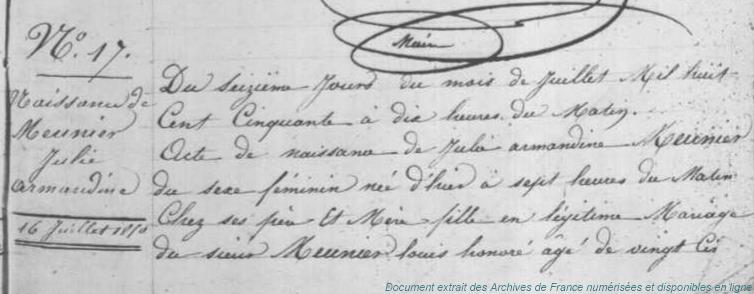 Maire
N.° 17.
Naissance de
Meunier
Julie
armandine
16 Juillet 1850
Du Seizième Jours du mois de Juillet Mil huit
Cent Cinquante à dix heures du Matin.
Acte de naissance de Julie armandine Meunier
du sexe féminin née d'hier à sept heures du Matin
Chez ses père Et Mère fille en légitime Mariage
du sieur Meunier louis honoré âgé de vingt
Document extrait des Archives de France numérisées et disponibles en ligne